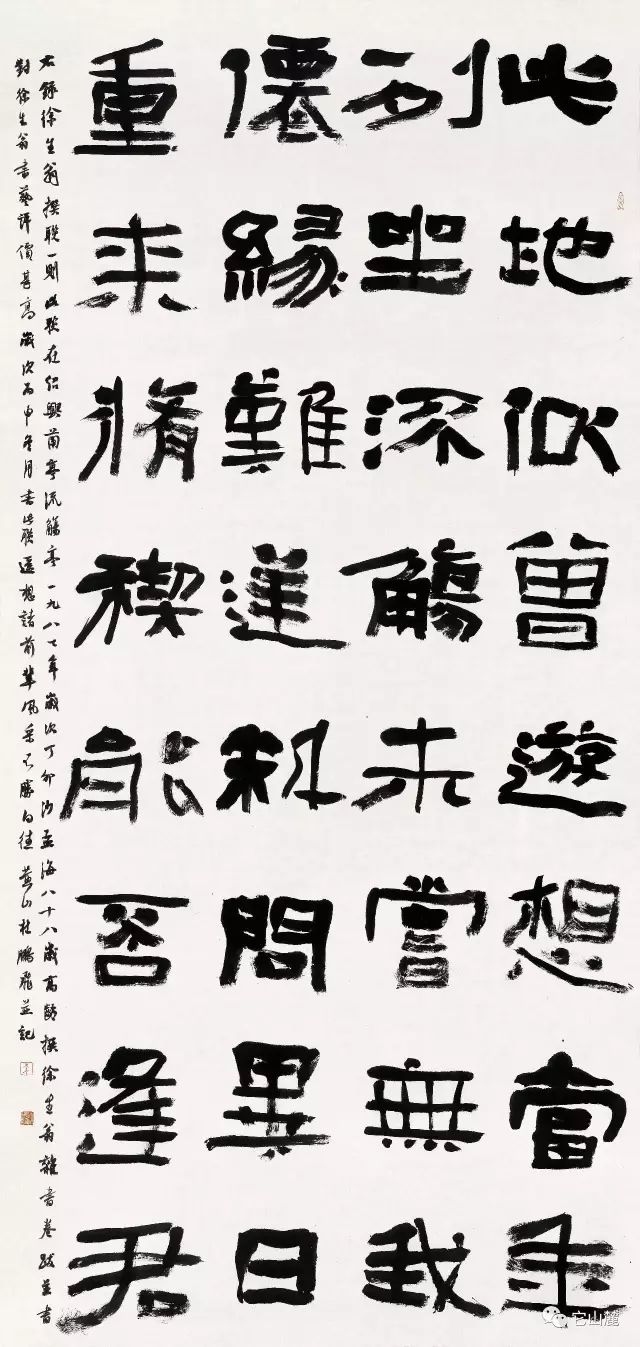 此地似曾遊想當年
列坐流觴未嘗無我
僊緣難逆料問異日
重來脩禊能否逢君
右錄徐生翁撰聯一則此聯在紹興蘭亭流觴亭一九八七年歲次丁卯沙孟海八十八歲高齡撰徐生翁雜書卷跋並書
對徐生翁書藝評價甚高歲次丙申冬月書此聯遥想諸前輩風采不勝向往黄山杜鵬飛並記
它山麓